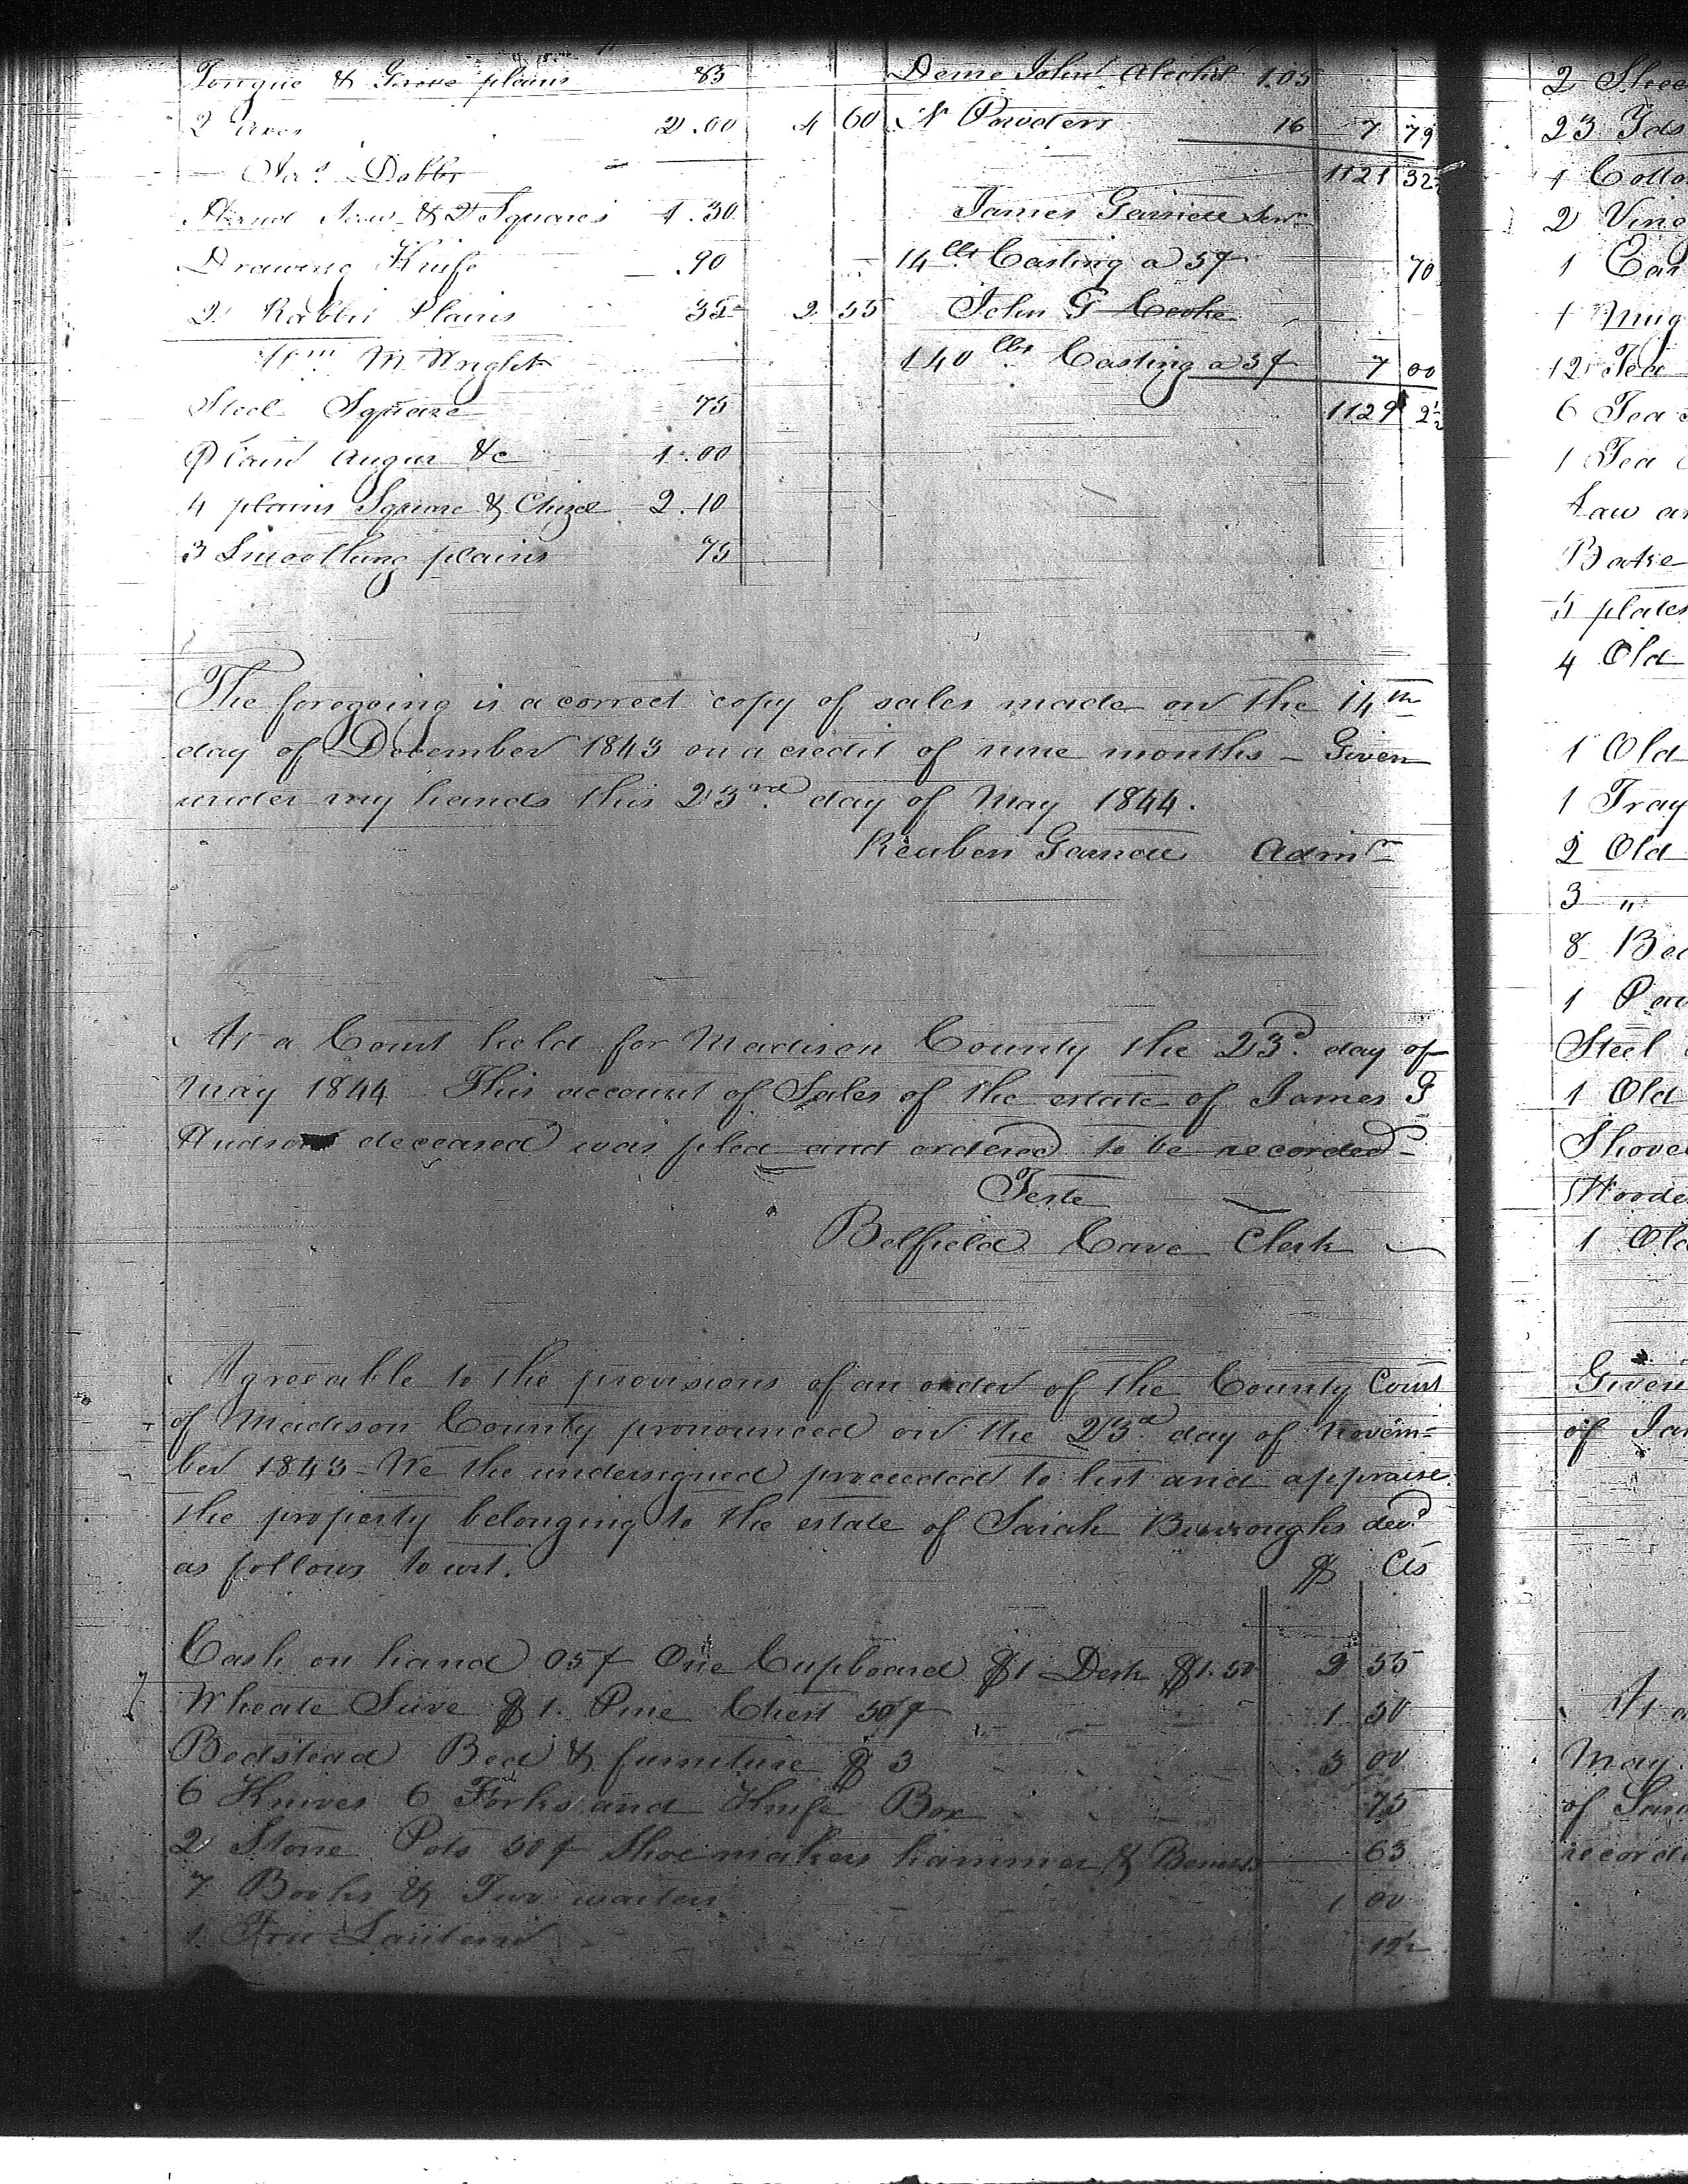 Tongue & Grove plains 85
2 axes 2.00 4 60
Jas. Dobbs
Hand Saw & 2 Squares 1.30
Drawing Knife .90
2 Rabbit Plains 35 2 55
Wm M Wright
Steel Square 75
Plain Augur &c 1.00
4 plains Square & Chizel 2.10
3 Smoothing plains 75
Demi John Alcohol 1.05
16 7 79
1121 32
James Garnett Senr
14 lbs Casting a 5¢ 70
John G
140 lbs Casting a 5¢ 7 00
1129 2½
The foregoing is a correct copy of sales made on the 14th
day of December 1843 on a credit of nine months – Given
under my hands this 23rd day of May 1844.
Reuben Garnett Admr
At a Court held for Madison County the 23d. day of
May 1844 – This account of Sales of the estate of James G
Hudson deceased was filed and ordered to be recorded –
Teste
Belfield Cave Clerk
Agreeable to the provisions of an order of the County Court
of Madison County pronounced on the 23d day of Novem=
ber 1843 – We the undersigned proceeded to list and appraise
the property belonging to the estate of Sarah Burroughs decd.
as follows to wit. $ Cts
Cash on hand 05¢ One Cupboard $1 Desk $1.50 2 55
Wheate Sieve $1. Pine Chest 50¢ 1 50
Bedstead Bed & furniture $3 3 00
6 Knives 6 Forks and Knife Box 75
2 Stone Pots 50¢ Shoemakers hammer & 63
7 Books & Two waiters 1 00
1 Lantern 12½
2
23 Yds
1
2
1
1 Mug
12 Tea
6 Tea
1 Tea
Bake
5 plates
4 Old
1 Old
1 Tray
2 Old
3 "
8
1
Steel
1 Old
Shovel
1 Old
Given
of
May
of